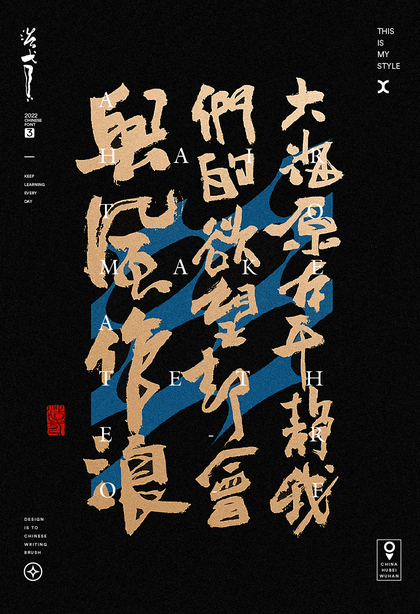 大海原本平靜我
們的欲望卻會
興風作浪
A
H A I R
T O
M A K E
A
T E T H
E - R
O F
2022
CHINESE
FONT
3
KEEP
LEARNING
EVERY
DAY
THIS
IS
MY
STYLE
DESIGN
IS TO
CHINESE
WRITING
BRUSH
CHINA
HUBEI
WUHAN